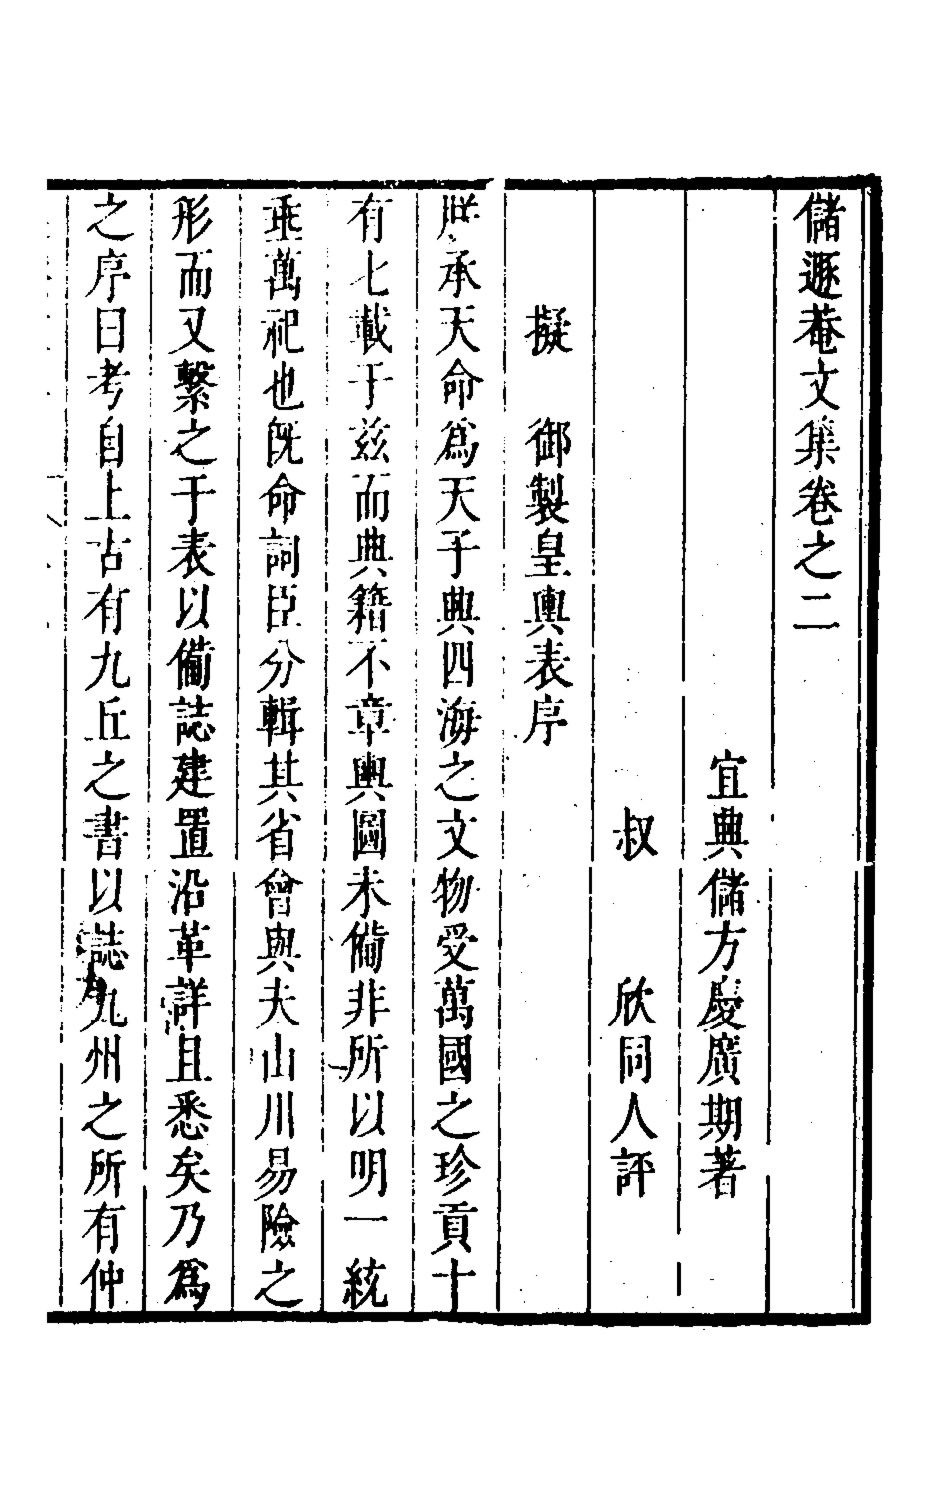 儲遯菴文集卷之二
宜興儲方慶廣期著
叔　欣同人評
擬　御製皇輿表序
朕承天命爲天子典四海之文物受萬國之珍貢十
有七載于兹而典籍不章輿圖未備非所以明一統
垂萬祀也旣命詞臣分輯其省會與夫山川易險之
形而又繫之于表以備誌建置沿革詳且悉矣乃爲
之序曰考自上古有九丘之書以誌九州之所有仲